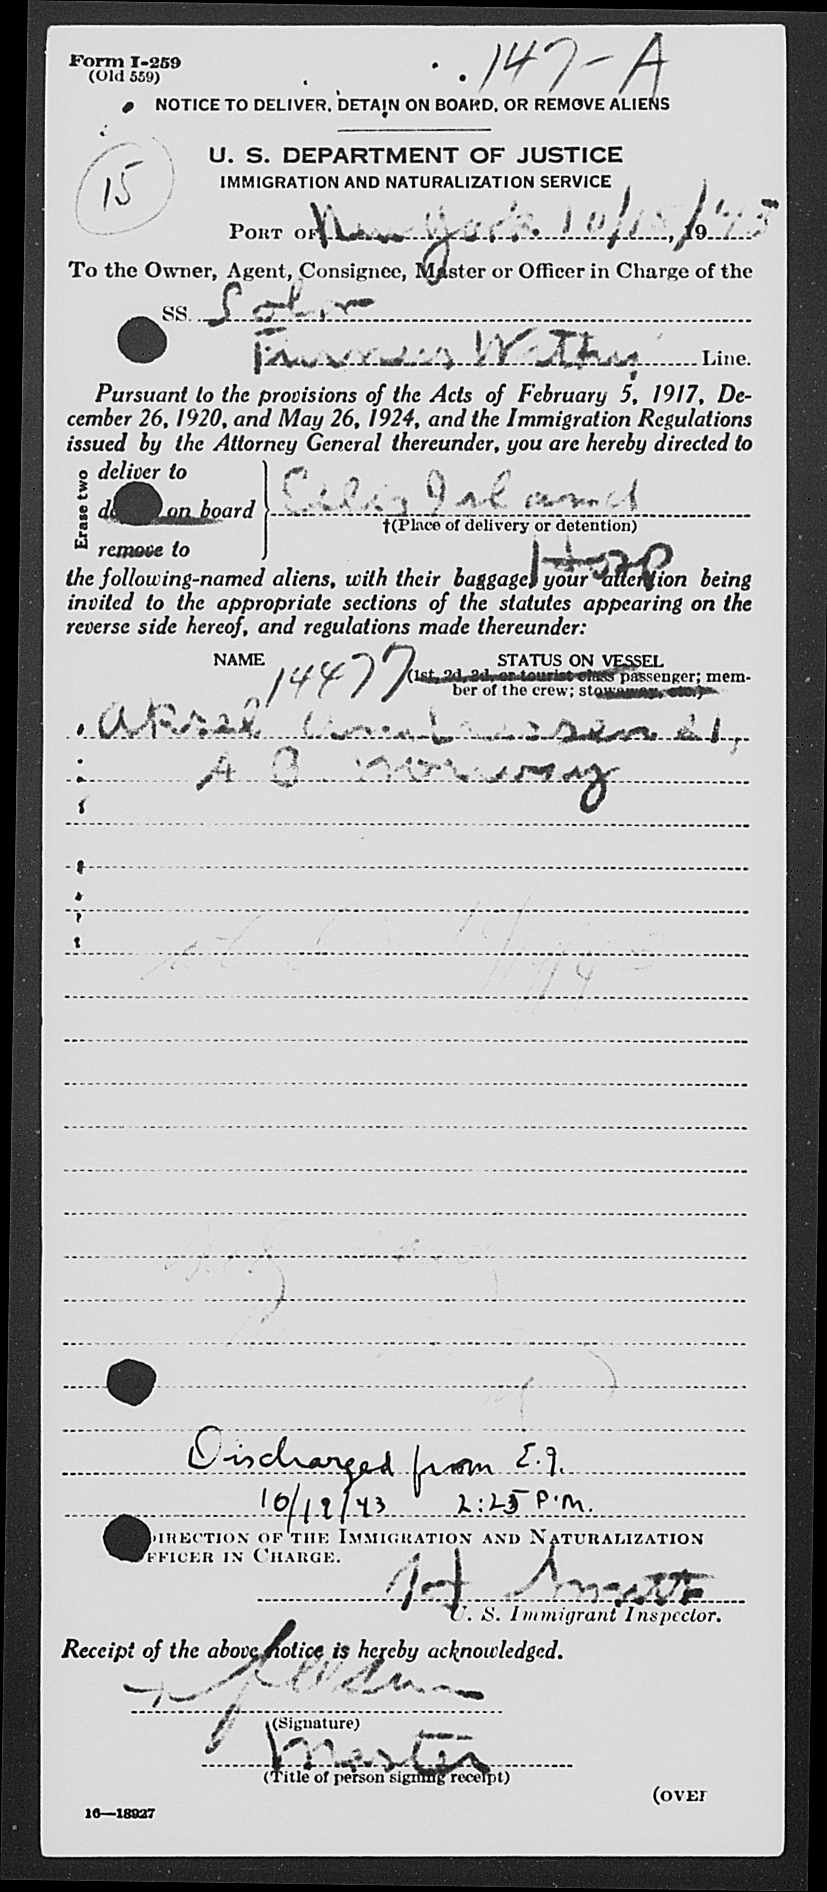 Form I-259
(Old 559)
147-A
NOTICE TO DELIVER, DETAIN ON BOARD, OR REMOVE ALIENS
15
U. S. DEPARTMENT OF JUSTICE
IMMIGRATION AND NATURALIZATION SERVICE
PORT OF New York 10/15, 1943
To the Owner, Agent, Consignee, Master or Officer in Charge of the
SS.
Furness Withy Line.
Pursuant to the provisions of the Acts of February 5, 1917, De-
cember 26, 1920, and May 26, 1924, and the Immigration Regulations
issued by the Attorney General thereunder, you are hereby directed to
Erase two
deliver to
on board
remove to
Ellis Island
†(Place of delivery or detention)
Hosp
the following-named aliens, with their baggage, your attention being
invited to the appropriate sections of the statutes appearing on the
reverse side hereof, and regulations made thereunder:
NAME
14477
STATUS ON VESSEL
(1st, 2d, 3d, or tourist class passenger; mem-
ber of the crew; stowaway, etc.)
21,
A B Norway
Discharged from E.I.
10/19/43 2:25 P.M.
DIRECTION OF THE IMMIGRATION AND NATURALIZATION
OFFICER IN CHARGE.
U. S. Immigrant Inspector.
Receipt of the above notice is hereby acknowledged.
(Signature)
Master
(Title of person signing receipt)
(OVER
16—18927